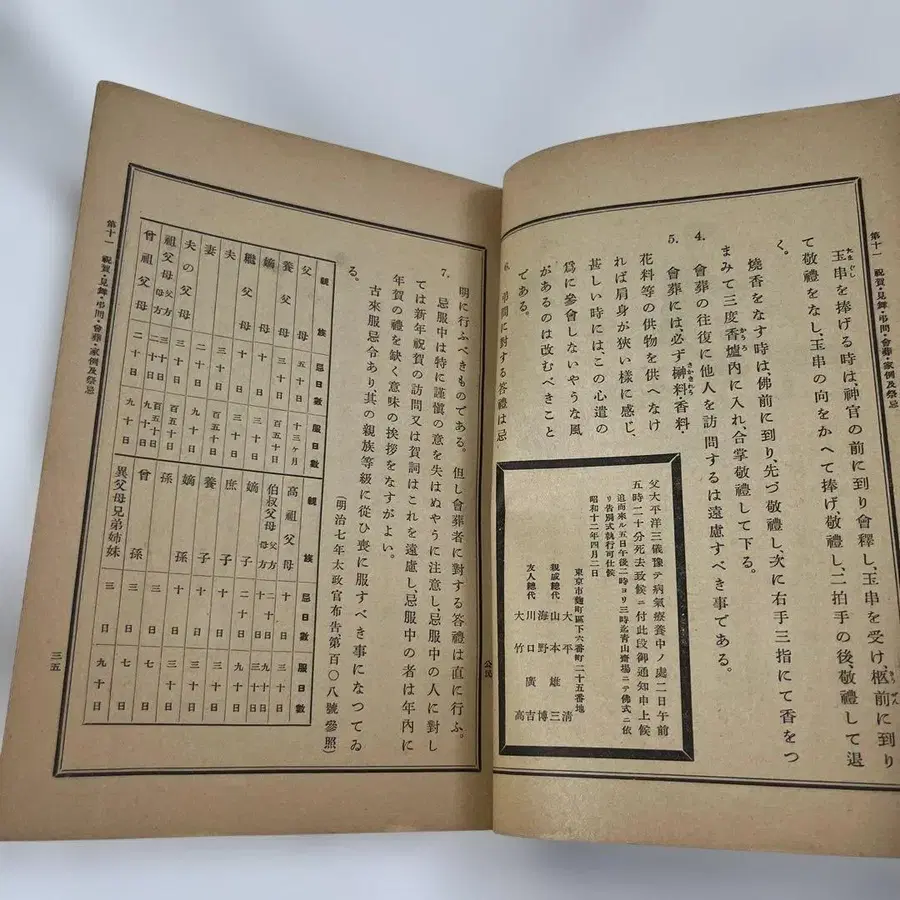 第十一 祝賀・見舞・弔問・會葬・家例及祭忌
玉串を捧げる時は、神官の前に到り會釋し、玉串を受け、柩前に到り
て敬禮をなし、玉串の向をかへて捧げ、敬禮し、二拍手の後、敬禮して退
く。
燒香をなす時は、佛前に到り、先づ敬禮し、次に右手三指にて香をつ
まみて三度香爐內に入れ、合掌敬禮して下る。
4. 會葬の往復に他人を訪問するは遠慮すべき事である。
5. 會葬には、必ず榊料香料・
花料等の供物を供へなけ
れば肩身が狹い樣に感じ、
甚しい時には、この心遣の
爲に參會しないやうな風
があるのは改むべきこと
である。
6. 弔問に對する答禮は忌
父大平洋三儀豫テ病氣療養中ノ處二日午前
五時二十分死去致候ニ付此段御通知申上候
追而來ル五日午後二時ヨリ三時迄靑山齋場ニテ佛式ニ依
リ告別式執行可仕候
昭和十二年四月二日
東京市麴町區下六番町二十五番地
大平淸
親戚總代 山本雄三
海野博
友人總代 川口廣吉
大竹高
公民
明に行ふべきものである。但し會葬者に對する答禮は直に行ふ。
7. 忌服中は特に謹愼の意を失はぬやうに注意し、忌服中の人に對し
ては新年祝賀の訪問又は賀詞はこれを遠慮し、忌服中の者は年內に
年賀の禮を缺く意味の挨拶をなすがよい。
古來服忌令あり其の親族等級に從ひ喪に服すべき事になつてゐ
る。
(明治七年太政官布吿、第百〇八號參照)
親族 忌日數 服日數
父母 五十日 十三ヶ月
夫の父母 三十日 百五十日
祖父母 父方 三十日 百五十日
母方 二十日 九十日
曾祖父母 二十日 九十日
親族 忌日數 服日數
高祖父母 十日 三十日
伯叔父母 父方 二十日 九十日
母方 十日 三十日
嫡子 二十日 九十日
庶子 十日 三十日
養子 十日 三十日
嫡孫 十日 三十日
孫 三日 七日
曾孫 三日 七日
異父母兄弟姉妹 三日 九十日
第十一 祝賀・見舞・弔問・會葬・家例及祭忌
三五